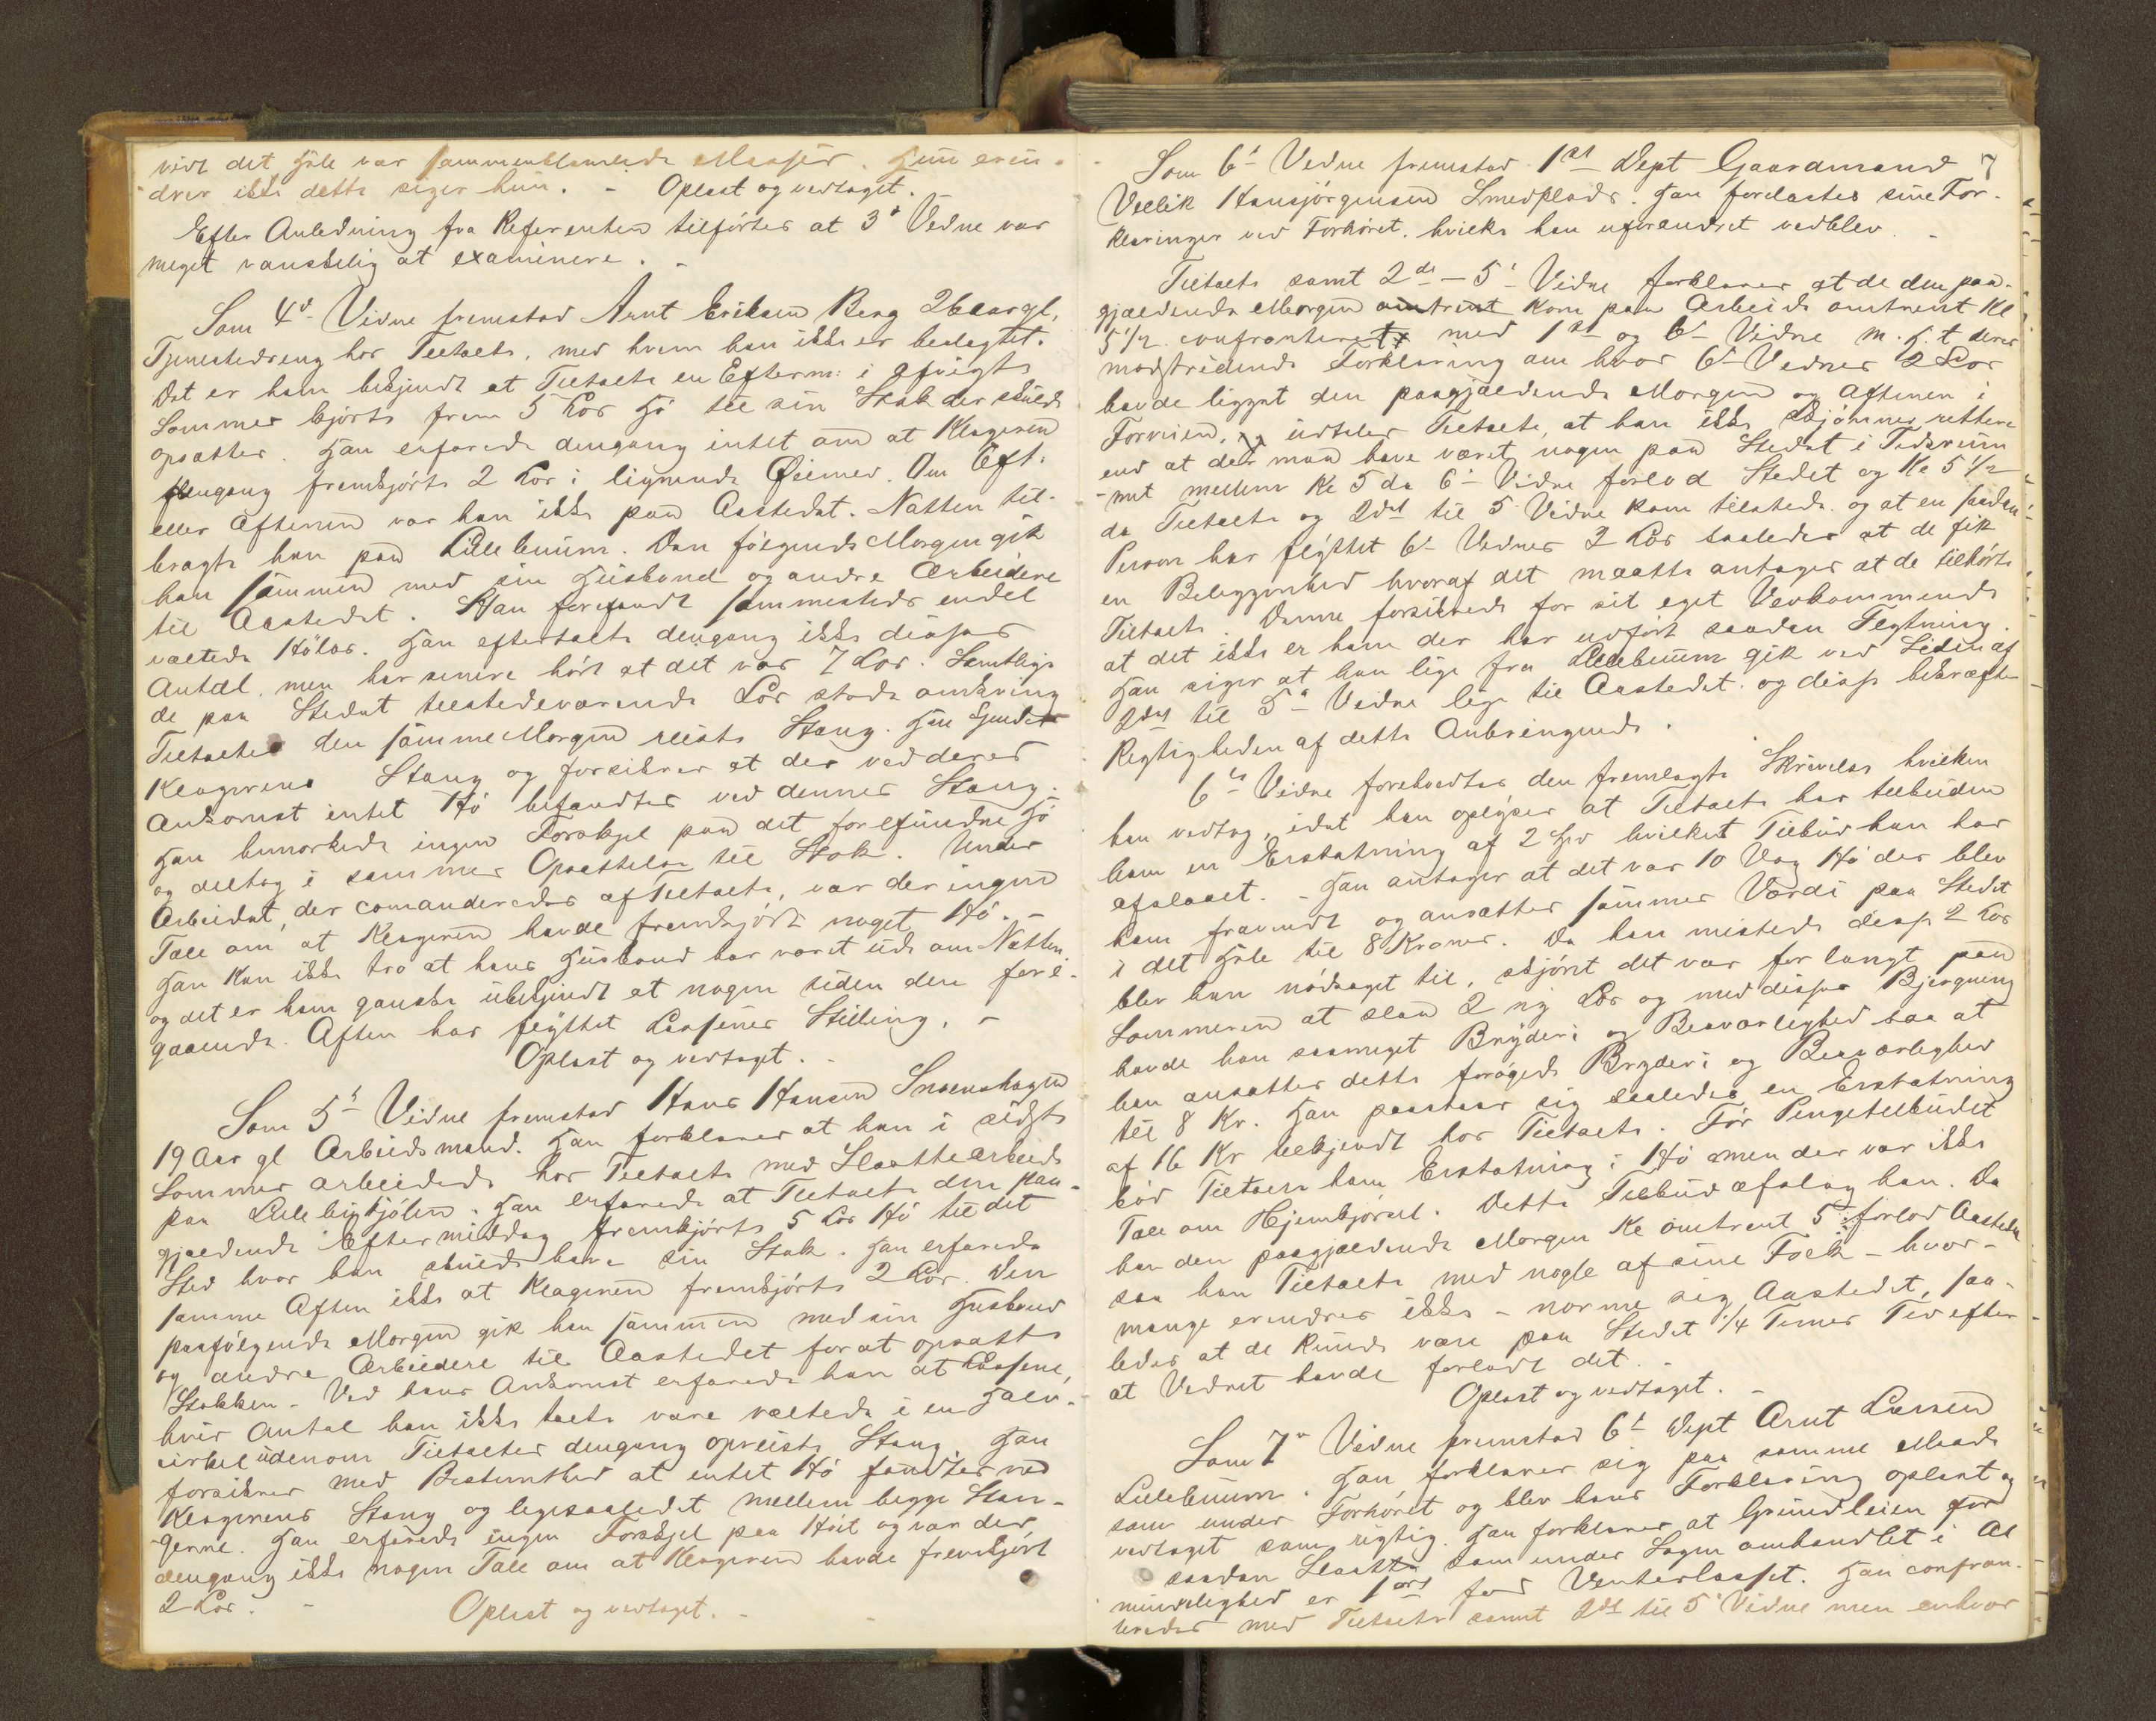 vidt det Hele var sammenblandede Masser. Hun erin-
drer ikke dette siger hun. - Oplæst og vedtaget. -
Efter Anledning fra Referenten tilføres at 3d Vidne var
meget vanskelig at examinere. -
Som 4d Vidne fremstod Arnt Eriksen Berg 26 aar gl,
Tjenestedreng hos Tiltalte, med hvem han ikke er beslægtet.
Det er ham bekjendt at Tiltalte en Efterm: i afvigte
Sommer kjørte frem 5 Læs Hø til sin Stak der skulde
opsættes. Han erfarede dengang intet om at Klageren
dengang fremkjørte 2 Læs i lignende Øiemed. Om Eft.
eller Aftenen var han ikke paa Aastedet. Natten til-
bragte han paa Lillebuum. Den følgende Morgen gik
han sammen med sin Husbond og andre Arbeidere
til Aastedet. Han forefandt sammesteds endel
væltede Hølæs. Han eftertalte dengang ikke disses
Antal, men har senere hørt at det var 7 Læs. Samtlige
de paa Stedet tilstedeværende Læs stode omkring
Tiltaltes den samme Morgen reiste Stang. Han kjendte
Klagerens Stang og forsikrer at der ved deres
Ankomst intet Hø befandtes ved dennes Stang.
Han bemærkede ingen Forskjel paa det forefundne Hø
og deltog i sammes Opsættelse til Stak. Under
Arbeidet, der comanderedes af Tiltalte, var der ingen
Tale om at Klageren havde fremkjørt noget Hø. -
Han kan ikke tro at hans Husbond har været ude om Natten
og det er ham ganske ubekjendt at nogen siden den fore-
gaaende Aften har flyttet Læssenes Stilling. -
Oplæst og vedtaget. -
Som 5t Vidne fremstod Hans Hansen Snoenshagen
19 Aar gl Arbeidsmand. Han forklarer at han i sidste
Sommer arbeidede hos Tiltalte med Slaattearbeide
paa Lillebukjølen. Han erfarede at Tiltalte den paa-
gjældende Eftermiddag fremkjørte 5 Læs Hø til det
Sted hvor han skulde have sin Stak. Han erfarede
samme Aften ikke at Klageren fremkjørte 2 Læs. Den
paafølgende Morgen gik han sammen med sin Husbond
og andre Arbeidere til Aastedet for at opsætte
Stakken. Ved hans Ankomst erfarede han at Læssene,
hvis Antal han ikke talte vare væltede i en Halv-
cirkel udenom Tiltaltes dengang opreiste Stang. Han
forsikrer med Bestemthed at intet Hø fandtes ved
Klagerens Stang og ligesaalidt mellem begge Stæn-
gerne. Han erfarede ingen Forskjel paa Høit og var der
dengang ikke nogen Tale om at Klageren havde fremkjørt
2 Læs. -
Oplæst og vedtaget. -
7
Som 6t Vidne fremstod 1ste Dept Gaardmand
Vellik Hansjørgensen Smedplads. Han forelæstes sine For-
klaringer ved Forhøret, hvilke han uforandret vedblev. -
Tiltalte samt 2de - 5t Vidne forklarer at de den paa-
gjældende Morgen omtrent kom paa Arbeide omtrent Kl
5 1/2. confronteret med 1ste og 6t Vidne m. H. t deres
modstridende Forklaring om hvor 6t Vidnes 2 Læs
havde ligget den paagjældende Morgen og Aftenen i
Forveien, udtaler Tiltalte, at han ikke skjønner rettere
end at der maa have været nogen paa Stedet i Tidsrum
met mellem Kl 5 da 6t Vidne forlod Stedet og Kl 5 1/2
da Tiltalte og 2det til 5 Vidne kom tilstede og at en saadan
Person har flyttet 6t Vidnes 2 Læs saaledes at de fik
en Beliggenhed hvoraf det maatte antages at de tilhørte
Tiltalte. Denne forsikrede for sit eget Vedkommende
at det ikke er ham der har udført saadan Flytning.
Han siger at han lige fra Lillebuum gik ved Siden af
2det til 5te Vidne lige til Aastedet og disse bekræfte
Rigtigheden af dette Anbringende.
6te Vidne foreholdtes den fremlagte Skrivelse hvilken
han vedtog, idet han oplyser at Tiltalte har tilbuden
ham en Erstatning af 2 Spd hvilket Tilbud han har
afslaaet. - Han antager at det var 10 Vog Hø der blev
ham fravendt og ansætter sammes Værdi paa Stedet
i det Hele til 8 Kroner. Da han mistede disse 2 Læs
blev han nødsaget til, skjønt det var for langt paa
Sommeren at slaa 2 ny Læs og med disses Bjergning
havde han saameget Bryderi og Besværlighed saa at
han ansætter dette forøgede Bryderi og Besværlighed
til 8 Kr. Han paastaar sig saaledes en Erstatning
af 16 Kr tilkjendt hos Tiltalte. Før Pengetilbudet
bød Tiltalte ham Erstatning i Hø men der var ikke
Tale om Hjemkjørsel. Dette Tilbud afslog han. Da
han den paagjældende Morgen Kl omtrent 5 forlod Aastedet
saa han Tiltalte med nogle af sine Folk - hvor-
mange erindres ikke - nærme sig Aastedet, saa-
ledes at de kunde være paa Stedet 1/4 Times Tid efter
at Vidnet havde forladt det. -
Oplæst og vedtaget. -
Som 7de Vidne fremstod 6t Dept Arnt Larsen
Lillebuum. Han forklarer sig paa samme Maade
som under Forhøret og blev hans Forklaring oplæst og
vedtaget som rigtig. Han forklarer at Grundleien for
saadan Slaatte som under Sagen omhandlet i Al
mindelighed er 1 ort for Vinterlasset. Han confron-
teredes med Tiltalte samt 2det til 5 Vidne men enhver